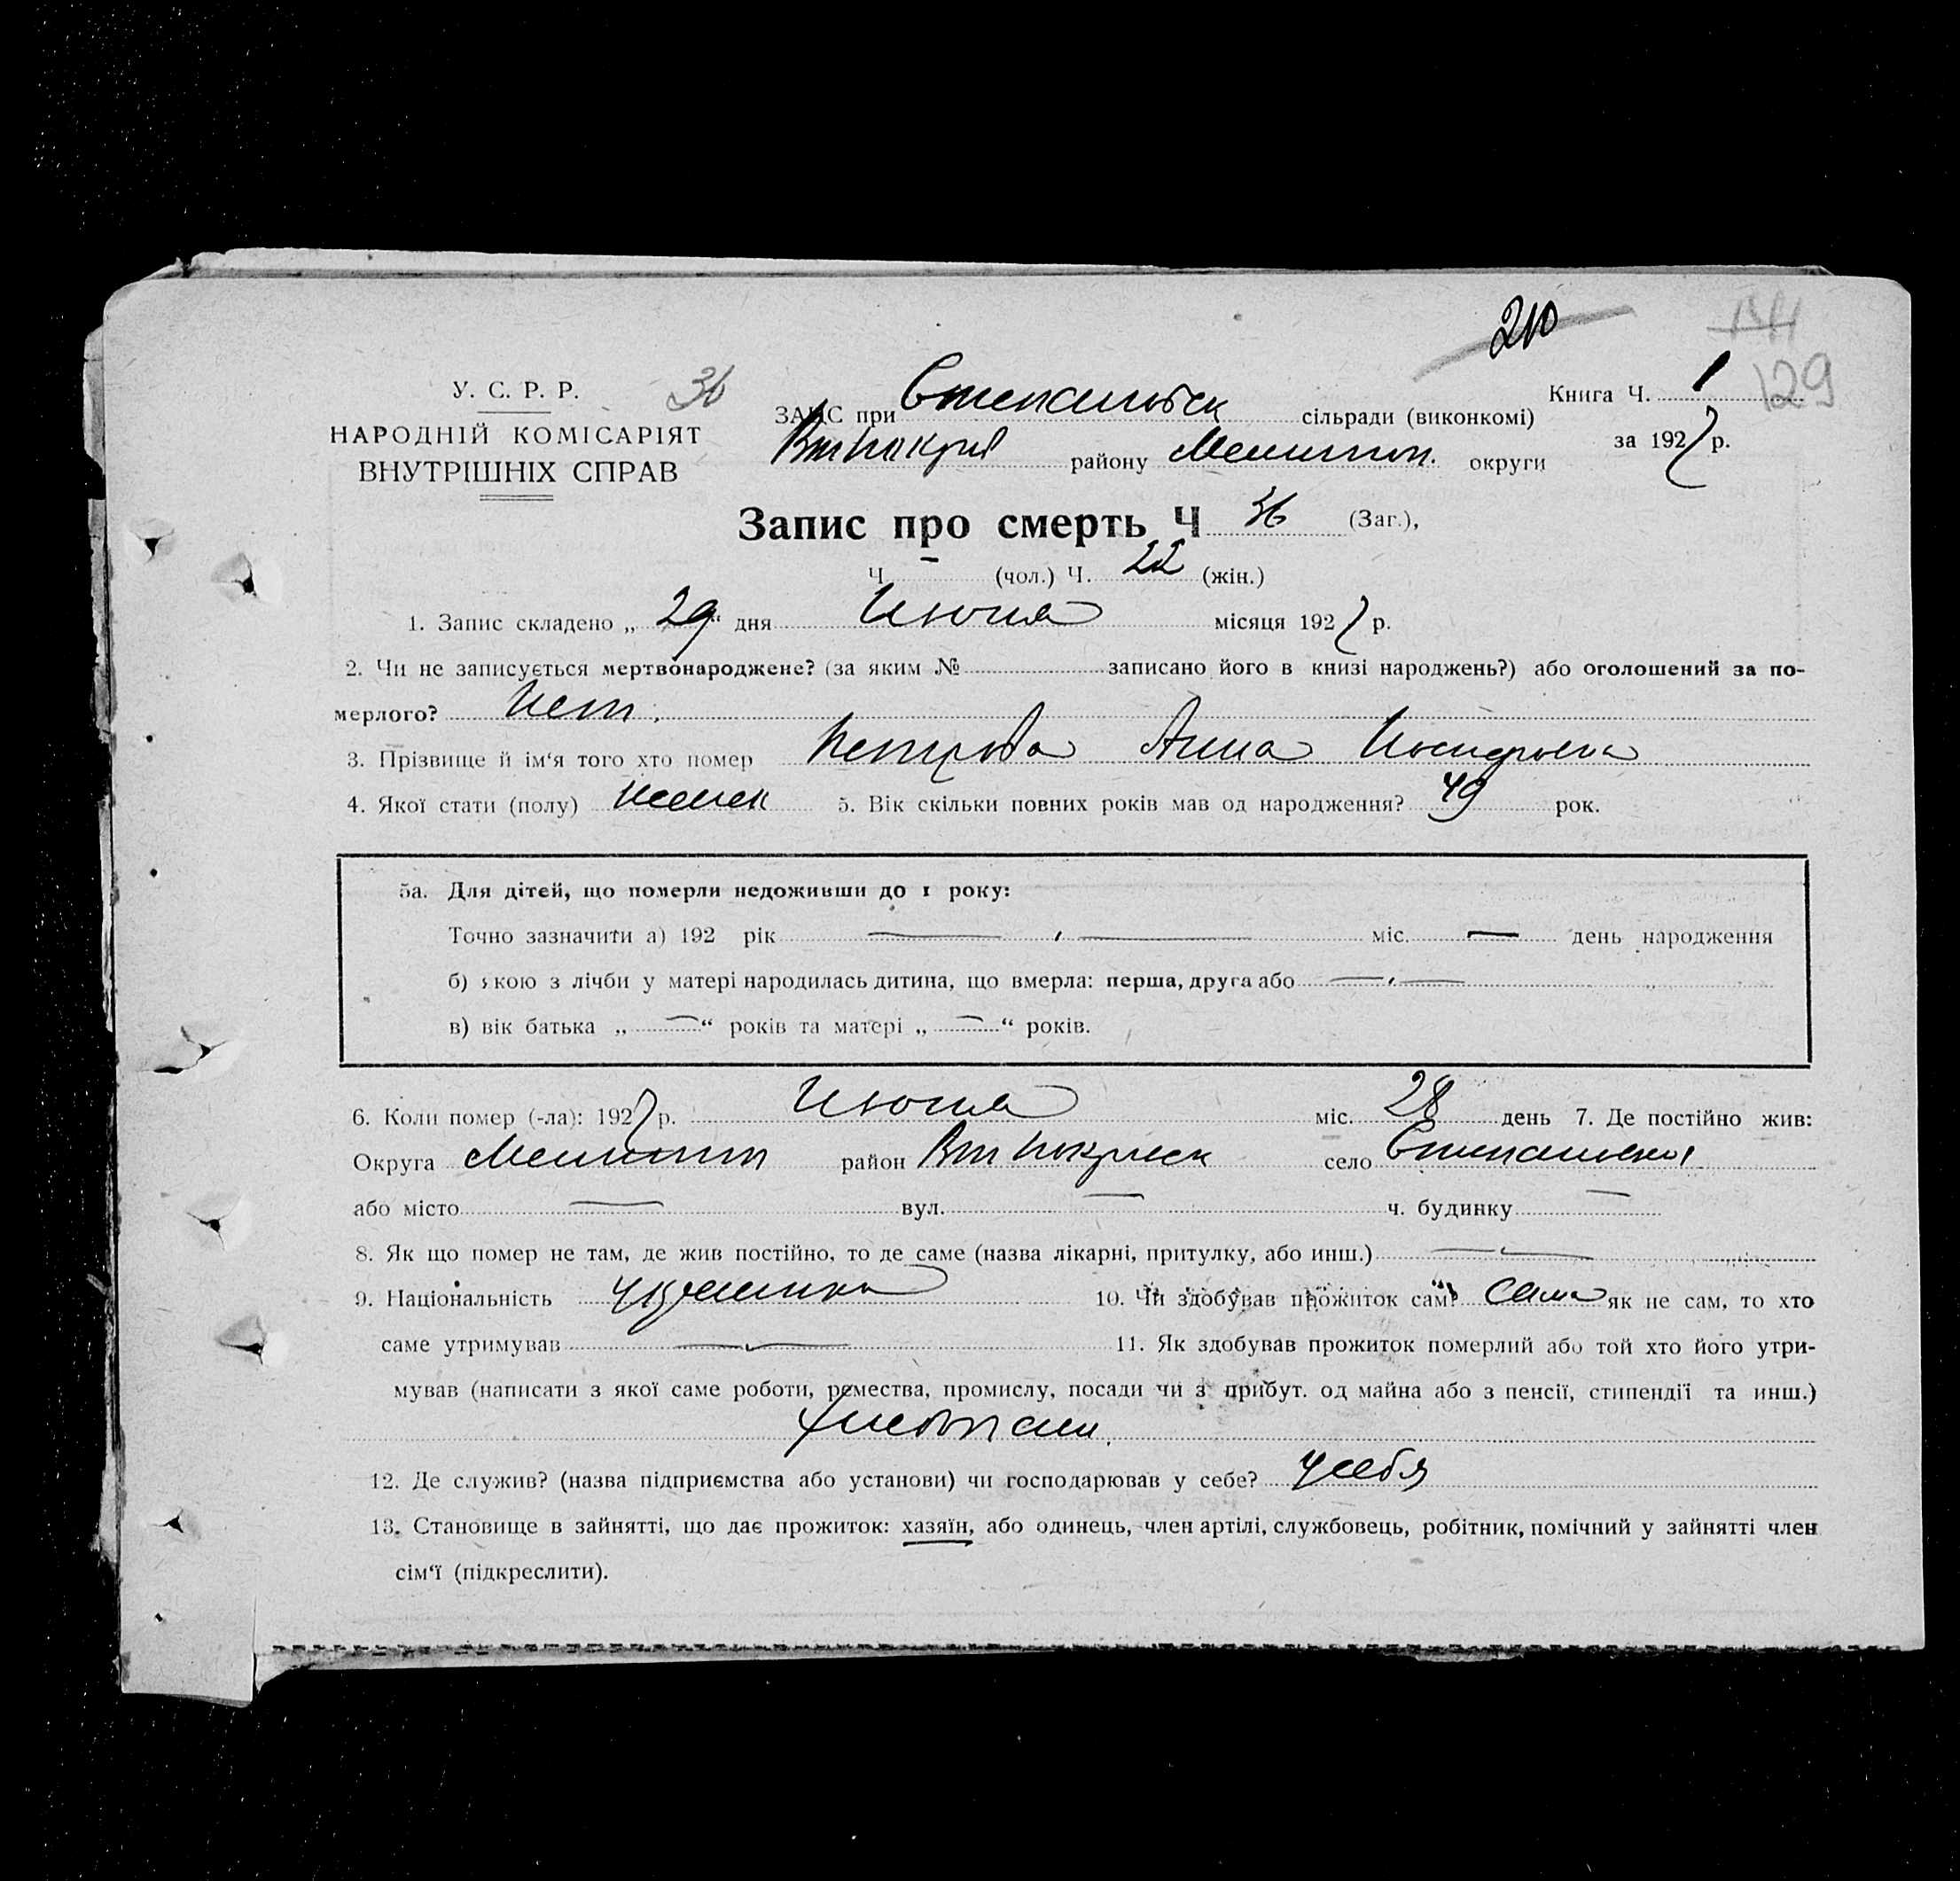 210
129
У. С. Р. Р.
НАРОДНІЙ КОМІСАРІЯТ
ВНУТРІШНІХ СПРАВ
36
ЗАГС при Степановск сільради (виконкомі)
району Мелитоп. округи
Книга Ч. 1
за 1927 р.
Запис про смерть Ч 36 (Заг.),
Ч. – (чол.) Ч. 22 (жін.)
1. Запис складено „ 29 “ дня Июня місяця 1927 р.
2. Чи не записується мертвонароджене? (за яким № записано його в книзі народжень?) або оголошений за по-
мерлого? Нет.
3. Прізвище й ім‘я того хто помер Петрова Анна
4. Якої стати (полу) женск 5. Вік скільки повних років мав од народження? 49 рок.
5а. Для дітей, що померли недоживши до 1 року:
Точно зазначити а) 192 рік — , — міс. — день народження
б) якою з лічби у матері народилась дитина, що вмерла: перша, друга або — , —
в) вік батька „ — “ років та матері „ — “ років.
6. Коли помер (-ла): 1927 р. Июня міс. 28 день 7. Де постійно жив:
Округа Мелитоп район село Степановка
або місто — вул. — ч. будинку —
8. Як що помер не там, де жив постійно, то де саме (назва лікарні, притулку, або инш.) — —
9. Національність 10. Чи здобував прожиток сам? Сама як не сам, то хто
саме утримував — — 11. Як здобував прожиток померлий або той хто його утри-
мував (написати з якої саме роботи, ремества, промислу, посади чи з прибут. од майна або з пенсії, стипендії та инш.)
хлебопаш.
12. Де служив? (назва підприємства або установи) чи господарював у себе? у себя
13. Становище в зайнятті, що дає прожиток: хазяїн, або одинець, член артілі, службовець, робітник, помічний у зайнятті член
сім‘ї (підкреслити).